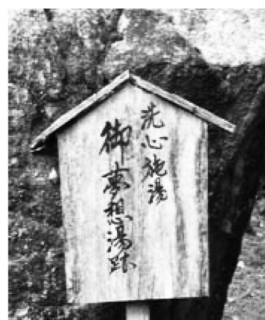 洗心施湯
御夢想湯跡